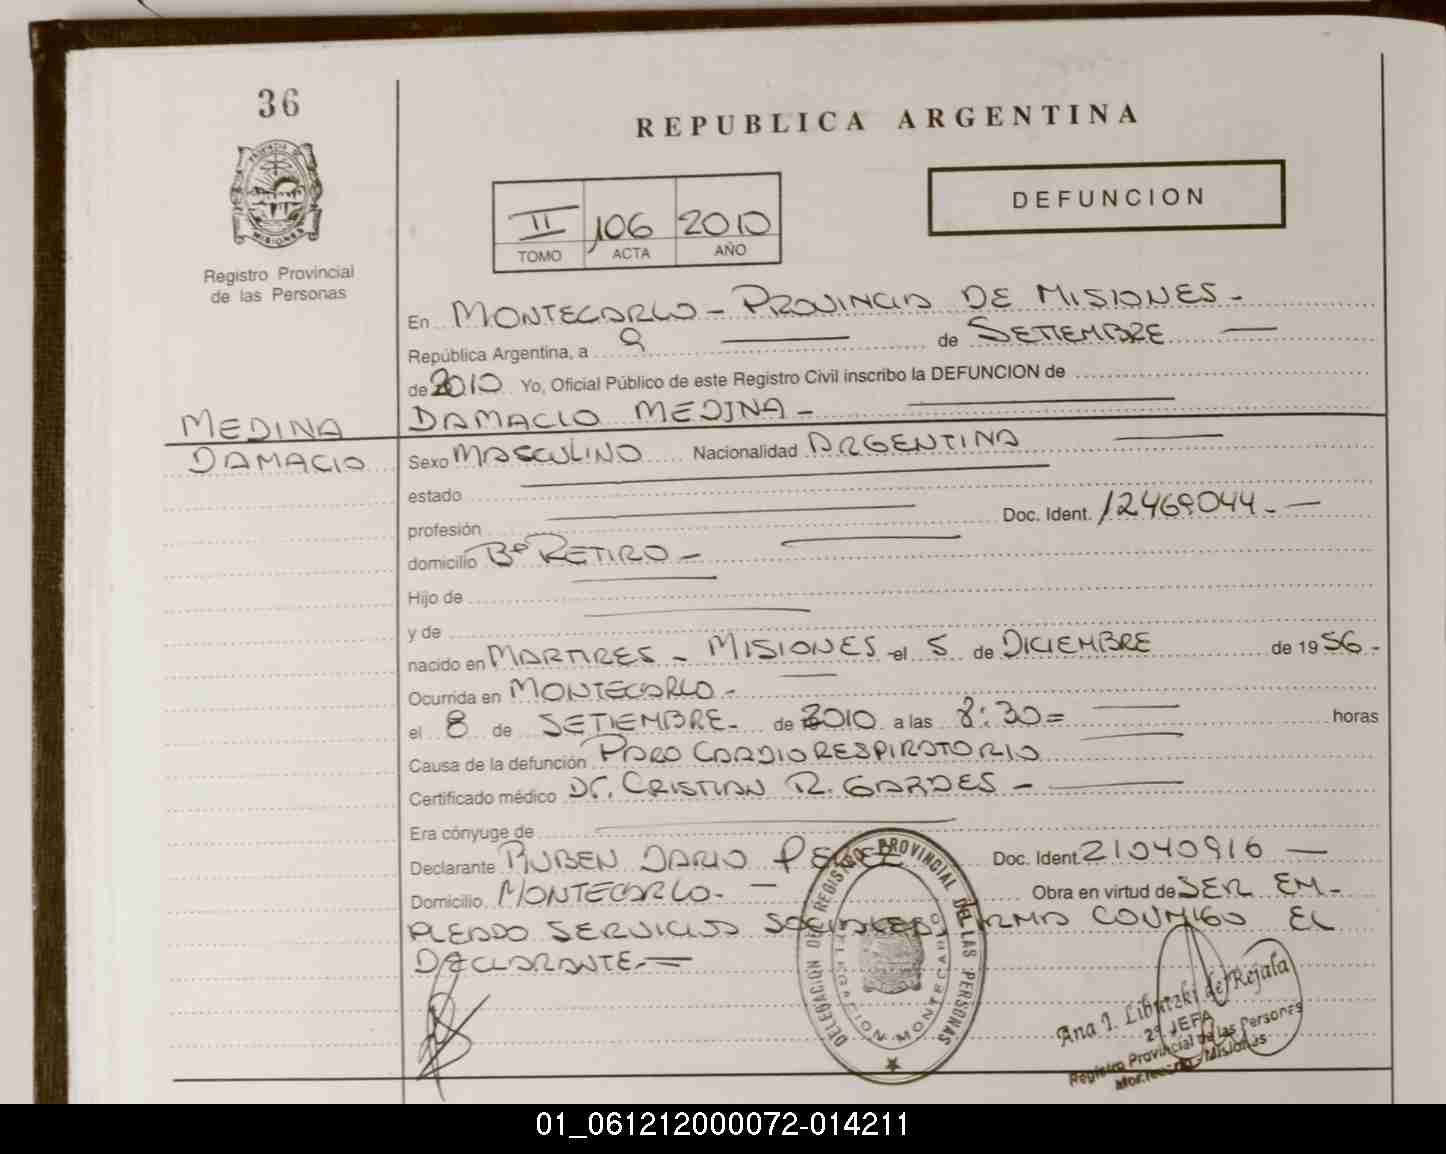 36
REPUBLICA ARGENTINA
PROVINCIA DE MISIONES
Registro Provincial
de las Personas
DEFUNCION
II 106 2010
TOMO ACTA AÑO
En MONTECARLO - PROVINCIA DE MISIONES -
República Argentina, a 9 de SETIEMBRE
de 2010 Yo, Oficial Público de este Registro Civil inscribo la DEFUNCION de
MEDINA
DAMACIO
DAMACIO MEDINA -
Sexo MASCULINO Nacionalidad ARGENTINA
estado
profesión Doc. Ident. 12469044 -
domicilio Bº RETIRO -
Hijo de
y de
nacido en MARTIRES - MISIONES - el 5 de DICIEMBRE de 1956 -
Ocurrida en MONTECARLO -
el 8 de SETIEMBRE - de 2010 a las 8:30 = horas
Causa de la defunción PARO CARDIORESPIRATORIO
Certificado médico Dr. CRISTIAN R. GARDES -
Era cónyuge de
Declarante RUBEN DARIO PEREZ Doc. Ident. 21040916 -
Domicilio MONTECARLO - Obra en virtud de SER EM-
PLEADO SERVICIOS SOCIALES FIRMA CONMIGO EL
DECLARANTE -
DELEGACION DEL REGISTRO PROVINCIAL DE LAS PERSONAS
MONTECARLO
Ana I. de Rejala
2ª JEFA
Registro Provincial de las Personas
Montecarlo - Misiones
01_061212000072-014211